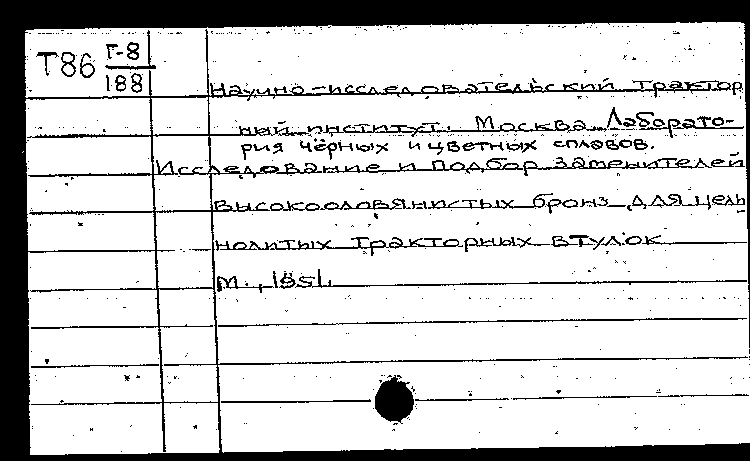 Т86 Г-8
188
Научно-исследовательский трактор
ный институт. Москва Лаборато-
рия чёрных и цветных сплавов.
Исследование и подбор заменителей
высокооловянистых бронз для цель
нолитых тракторных втулок
М., 1951.